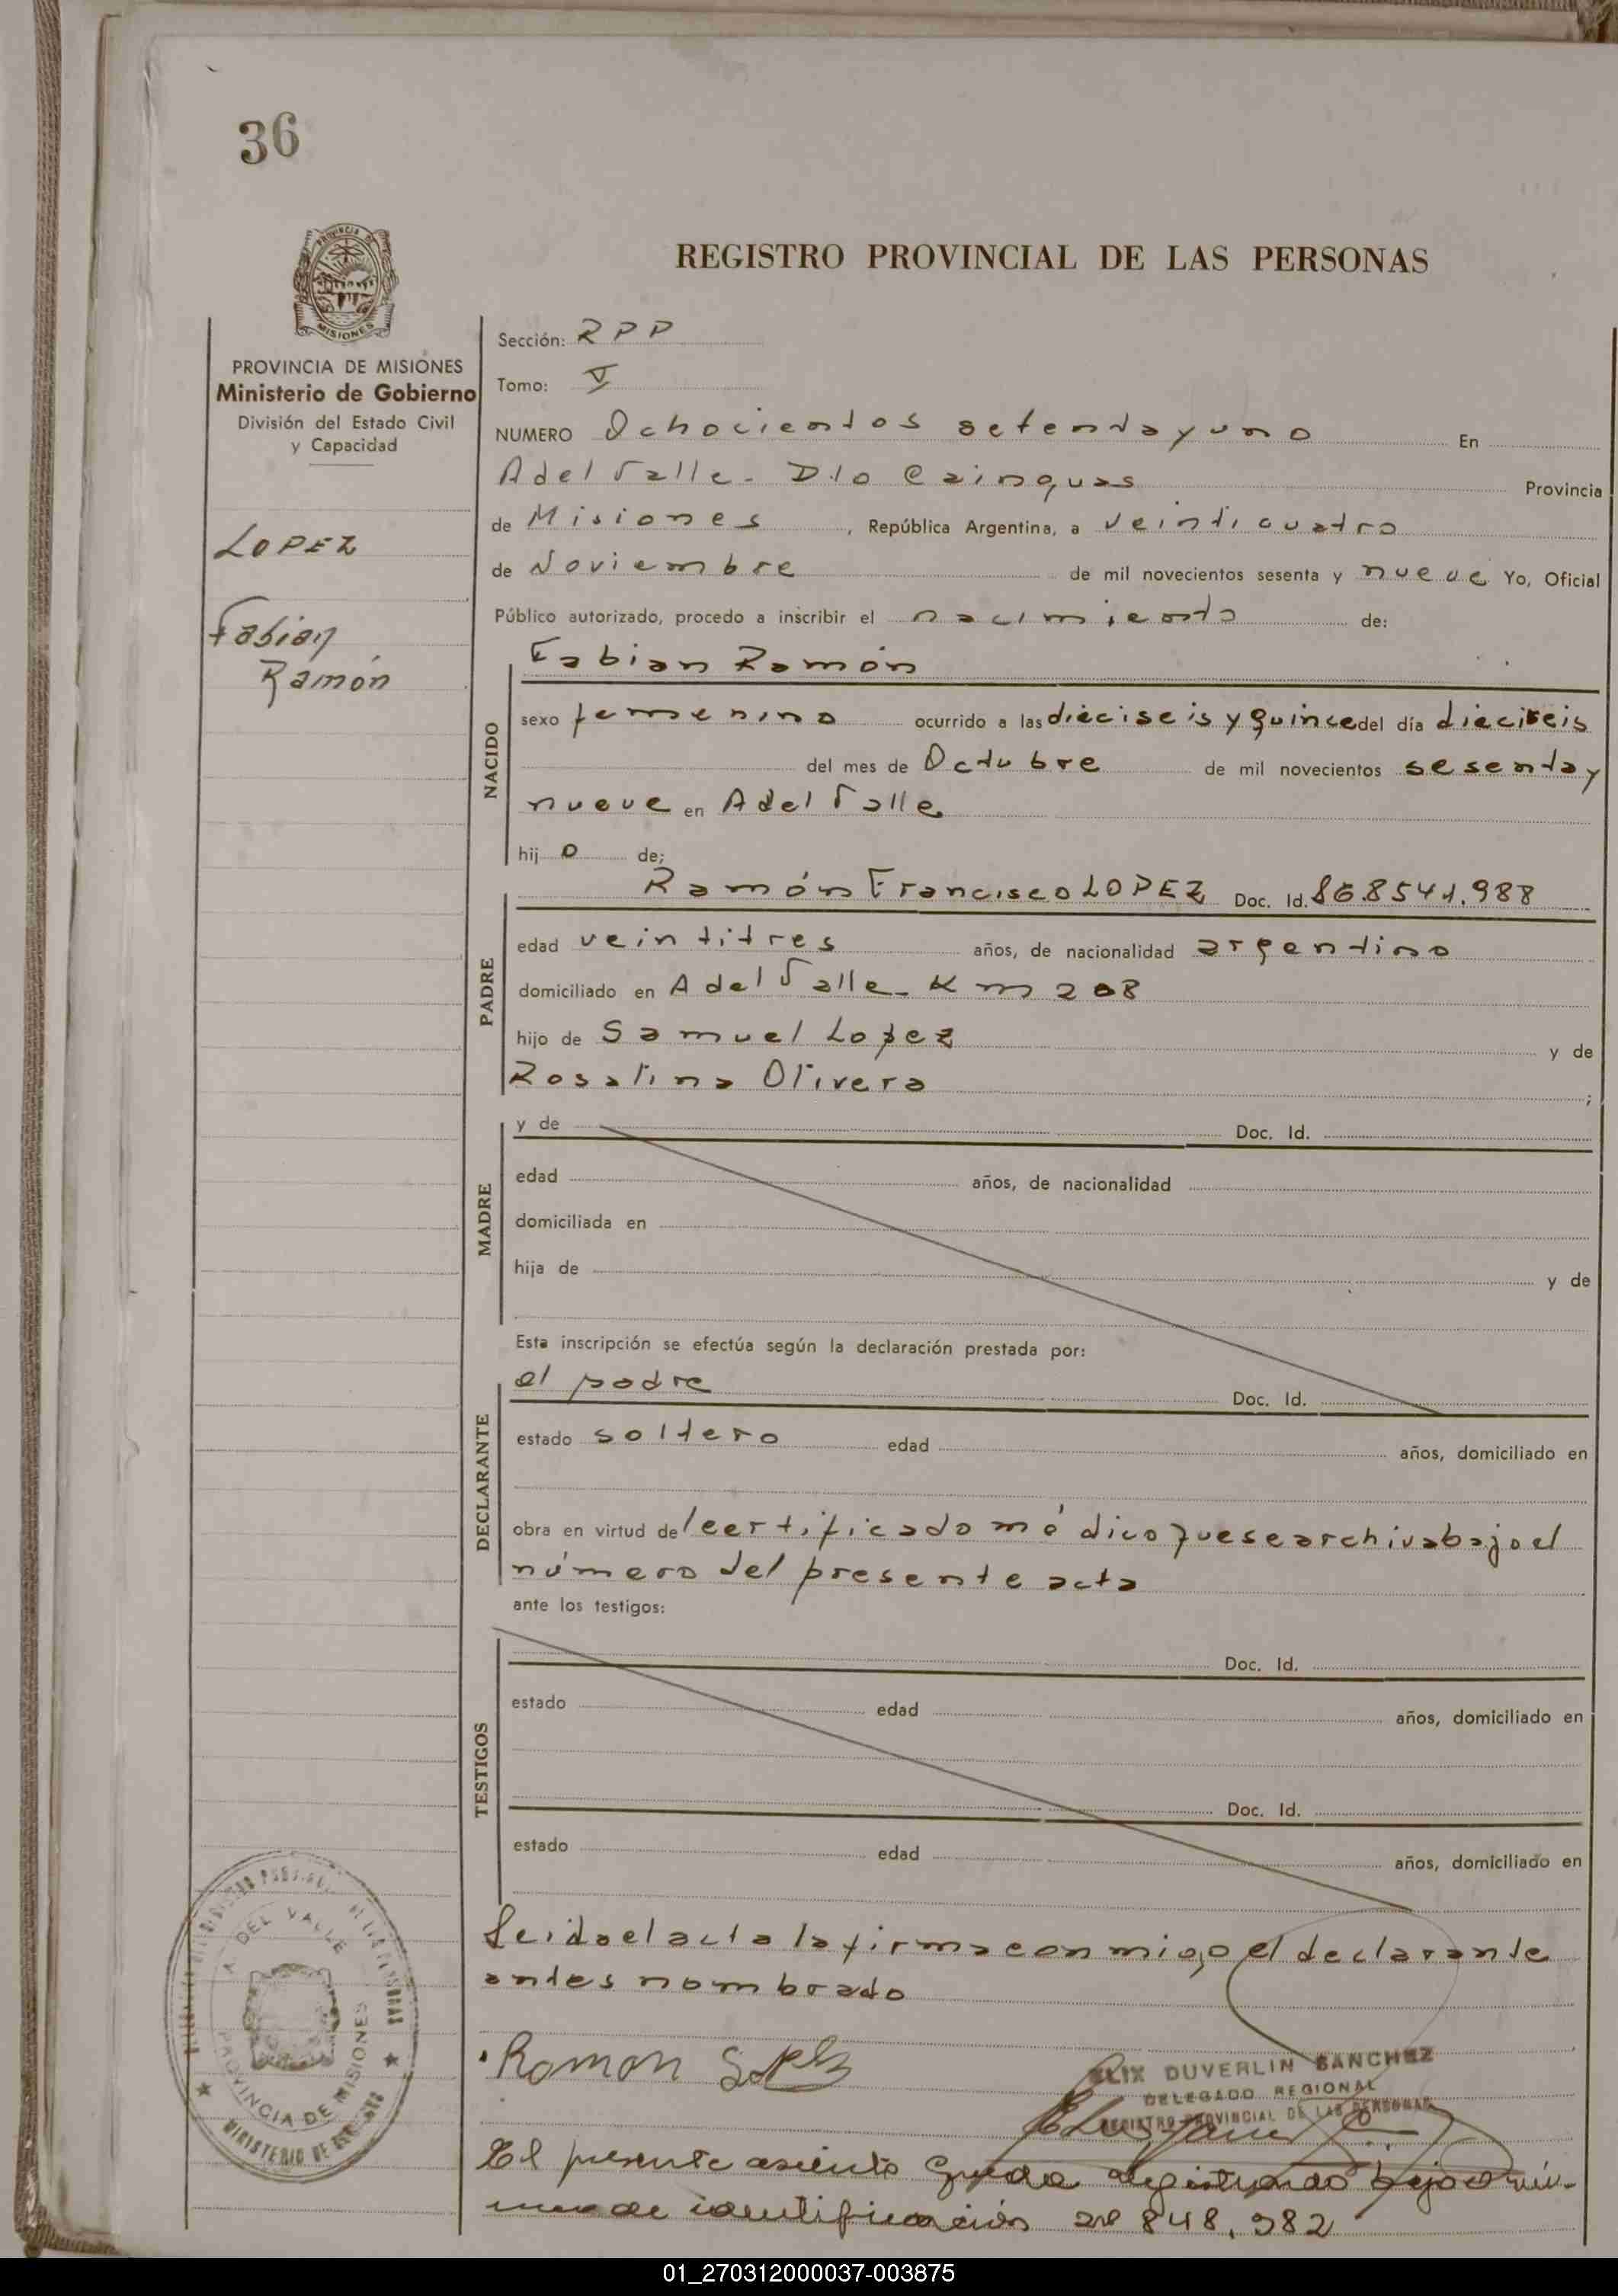 36
PROVINCIA DE MISIONES
Ministerio de Gobierno
División del Estado Civil
y Capacidad
LOPEZ
Fabian
Ramón
REGISTRO PROVINCIAL DE LAS PERSONAS
Sección: RPP
Tomo: V
NUMERO Ochocientos setenta y uno En
A del Valle - Dto Cainguas Provincia
de Misiones, República Argentina, a veinticuatro
de Noviembre de mil novecientos sesenta y nueve Yo, Oficial
Público autorizado, procedo a inscribir el nacimiento de:
Fabian Ramón
NACIDO
sexo femenino ocurrido a las dieciseis y quince del día dieciseis
del mes de Octubre de mil novecientos sesenta y
nueve en A del Valle
hij o de;
Ramón Francisco LOPEZ Doc. Id. 8.541.988
PADRE
edad veintitres años, de nacionalidad argentino
domiciliado en A del Valle - Km 208
hijo de Samuel Lopez y de
Rosalina Olivera ;
y de Doc. Id.
MADRE
edad años, de nacionalidad
domiciliada en
hija de y de
Esta inscripción se efectúa según la declaración prestada por:
el padre Doc. Id.
DECLARANTE
estado soltero edad años, domiciliado en
obra en virtud del certificado médico que se archiva bajo el
número del presente acta
ante los testigos:
Doc. Id.
TESTIGOS
estado edad años, domiciliado en
Doc. Id.
estado edad años, domiciliado en
Leida el acta la firma con migo el declarante
antes nombrado
Ramon
ELIX DUVERLIN SANCHEZ
DELEGADO REGIONAL
REGISTRO PROVINCIAL DE LAS PERSONAS
A. DEL VALLE
PROVINCIA DE MISIONES
MINISTERIO DE
El presente asiento queda registrado bajo el nú-
mero de identificación 20.848.982
01_270312000037-003875